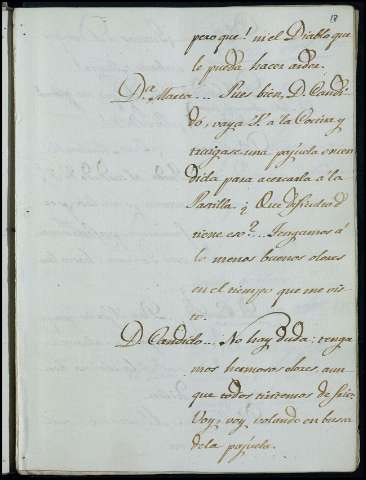 18
pero que! ni el Diablo que
le pueda hacer arder.
Dª Marta... Pues bien, D. Candi-
do, vaya Vd. a la Cocina y
traigase una pajuela encen-
dida para acercarla à la
Pastilla ¿ Que dificultad
tiene eso?... Tengamos á
lo menos buenos olores
en el tiempo que me vis-
to.
D. Candido... No hay duda; tenga-
mos hermosos olores, aun-
que todos tiritemos de frio:
Voy, voy volando en busca
de la pajuela.